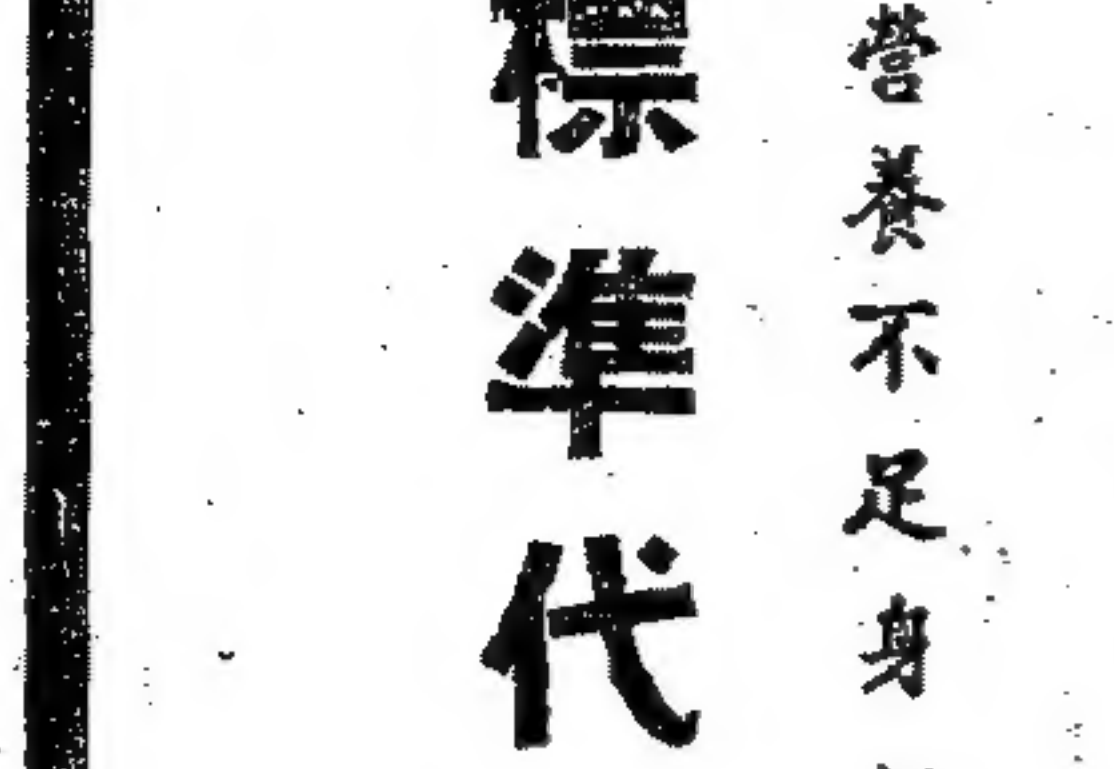 營養不足身
標準代